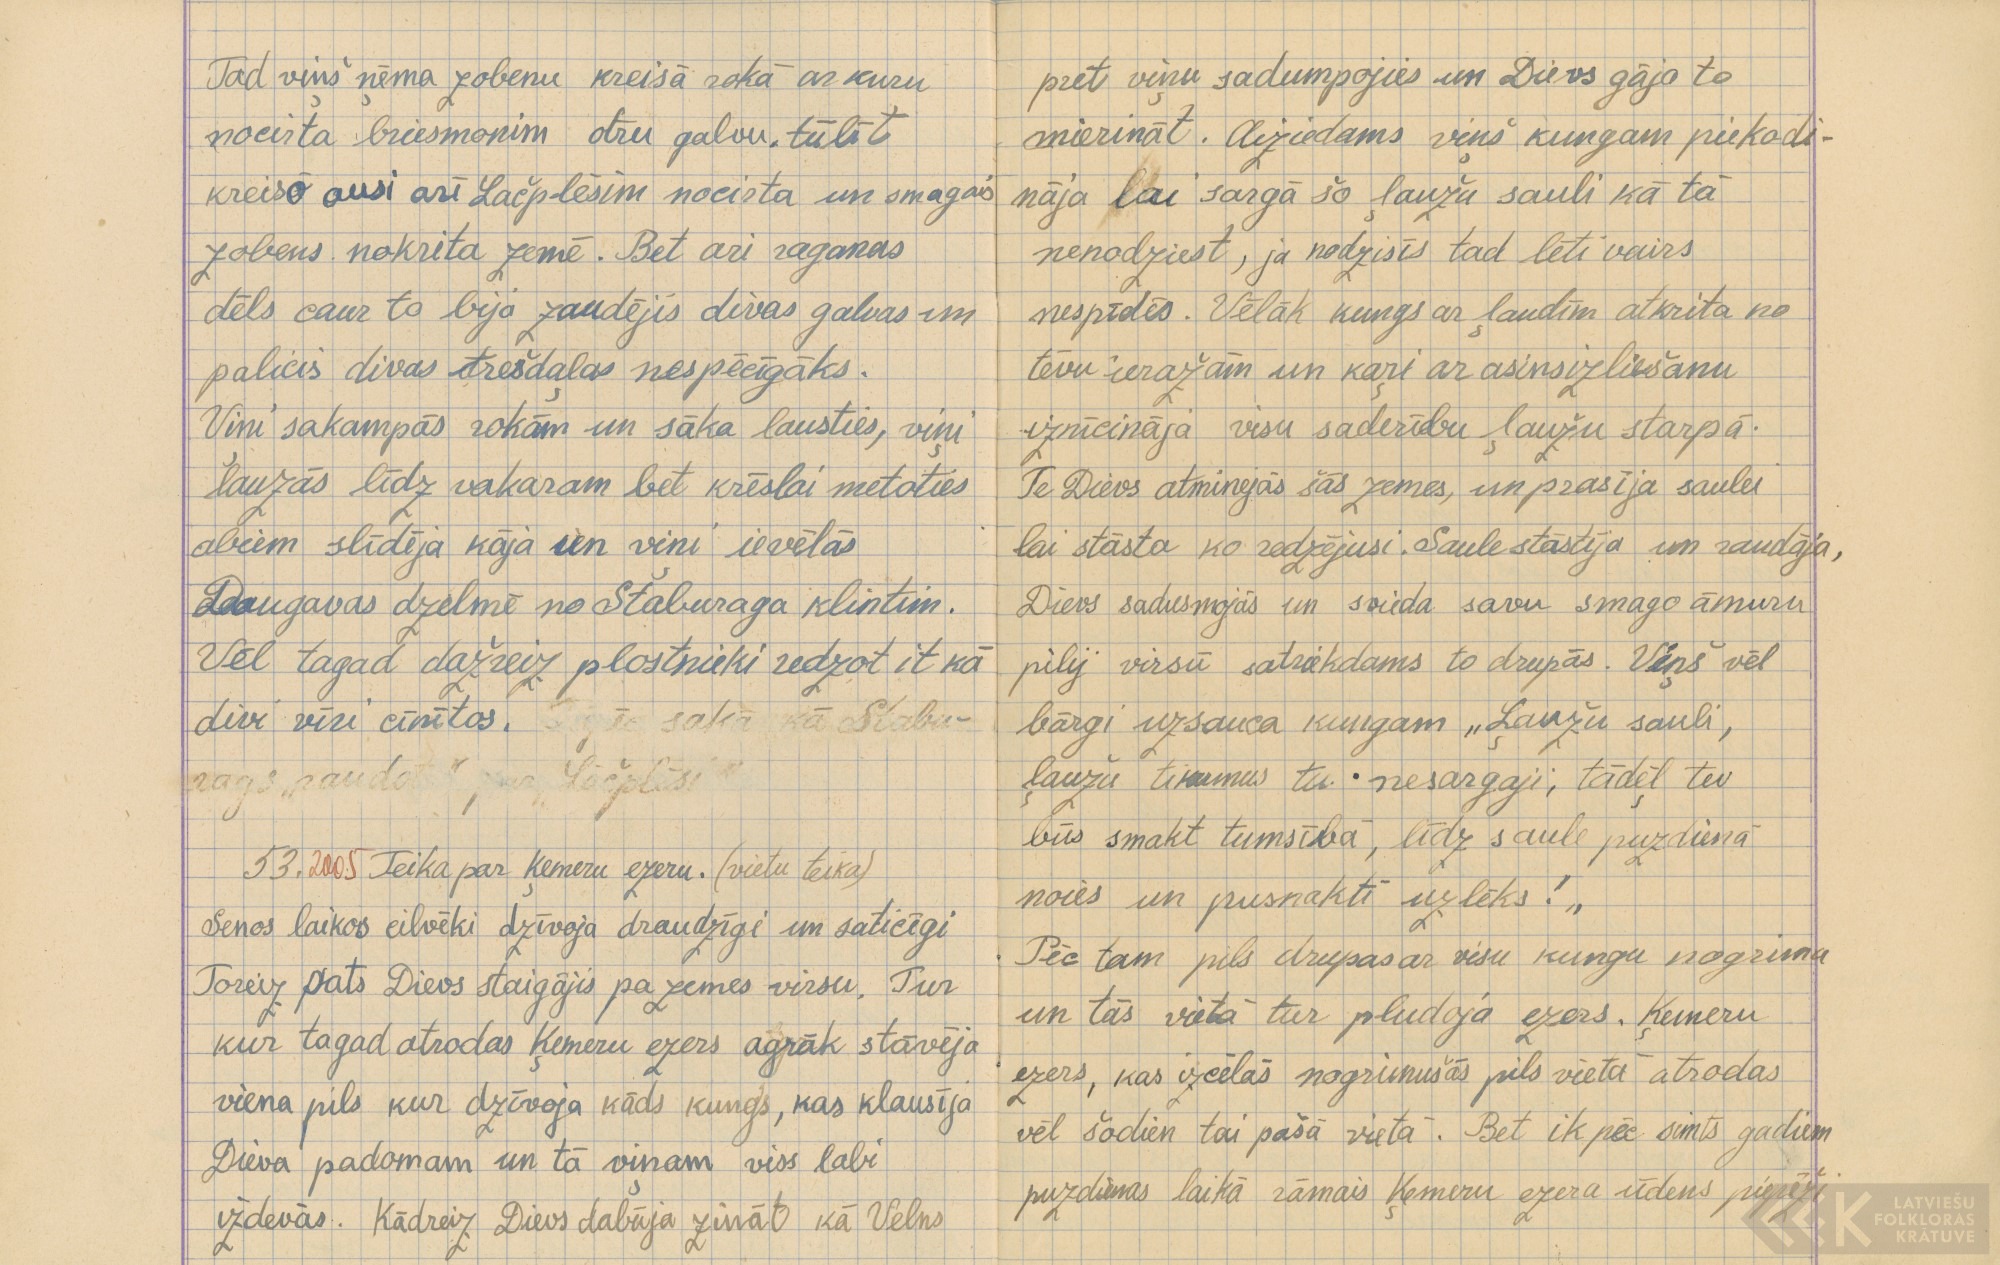 Tad viņš ņēma zobenu kreisā rokā ar kuru
nocirta briesmonim otru galvu, tūlīt
kreiso ausi arī Lačplēsim nocirta un smagais
zobens nokrita zemē. Bet ari raganas
dēls caur to bija zaudējis divas galvas un
palicis divas trešdaļas nespēcīgāks.
Viņi sakampās rokām un sāka lausties, viņi
lauzās līdz vakaram bet krēslai metoties
abiem slīdēja kāja un viņi ievēlās
Daugavas dzelmē no Staburaga klintim.
Vēl tagad dažreiz plostnieki redzot it kā
divi vīri cīnītos. saka kā Stabu-
rags „raudot" par Lāčplēsi"
53. 2005 Teika par Ķemeru ezeru. (vietu teika)
Senos laikos cilvēki dzīvoja draudzīgi un saticīgi
Toreiz pats Dievs staigājis pa zemes virsu. Tur
kur tagad atrodas Ķemeru ezers agrāk stāvēja
viena pils kur dzīvoja kāds kungs, kas klausīja
Dieva padomam un tā viņam viss labi
izdevās. Kādreiz Dievs dabūja zināt kā Velns
pret viņu sadumpojies un Dievs gāja to
mierināt. Aiziedams viņš kungam piekodi-
nāja lai sargā šo ļaužu sauli kā tā
nenodziest, ja nodzisīs tad lēti vairs
nespīdēs. Vēlāk kungs ar ļaudīm atkrita no
tēvu ieražām un kaŗi ar asinsizliešanu
iznīcināja visu saderību ļaužu starpā.
Te Dievs atminējās šās zemes, un prasīja saulei
lai stāsta ko redzējusi. Saule stāstīja un raudāja,
Dievs sadusmojās un svieda savu smago āmuru
pilij virsū satriekdams to drupās. Viņš vēl
bārgi uzsauca kungam „Ļaužu sauli,
ļaužu tikumus tu nesargaji; tādēļ tev
būs smakt tumsībā, līdz saule puzdienā
noies un pusnaktī uzlēks!„
Pēc tam pils drupas ar visu kungu nogrima
un tās vietā tur pludoja ezers. Ķemeru
ezers, kas izcēlās nogrimušās pils vietā atrodas
vēl šodien tai pašā vietā. Bet ik pēc simts gadiem
puzdienas laikā rāmais Ķemeru ezera ūdens
LATVIEŠU
FOLKLORAS
KRĀTUVE